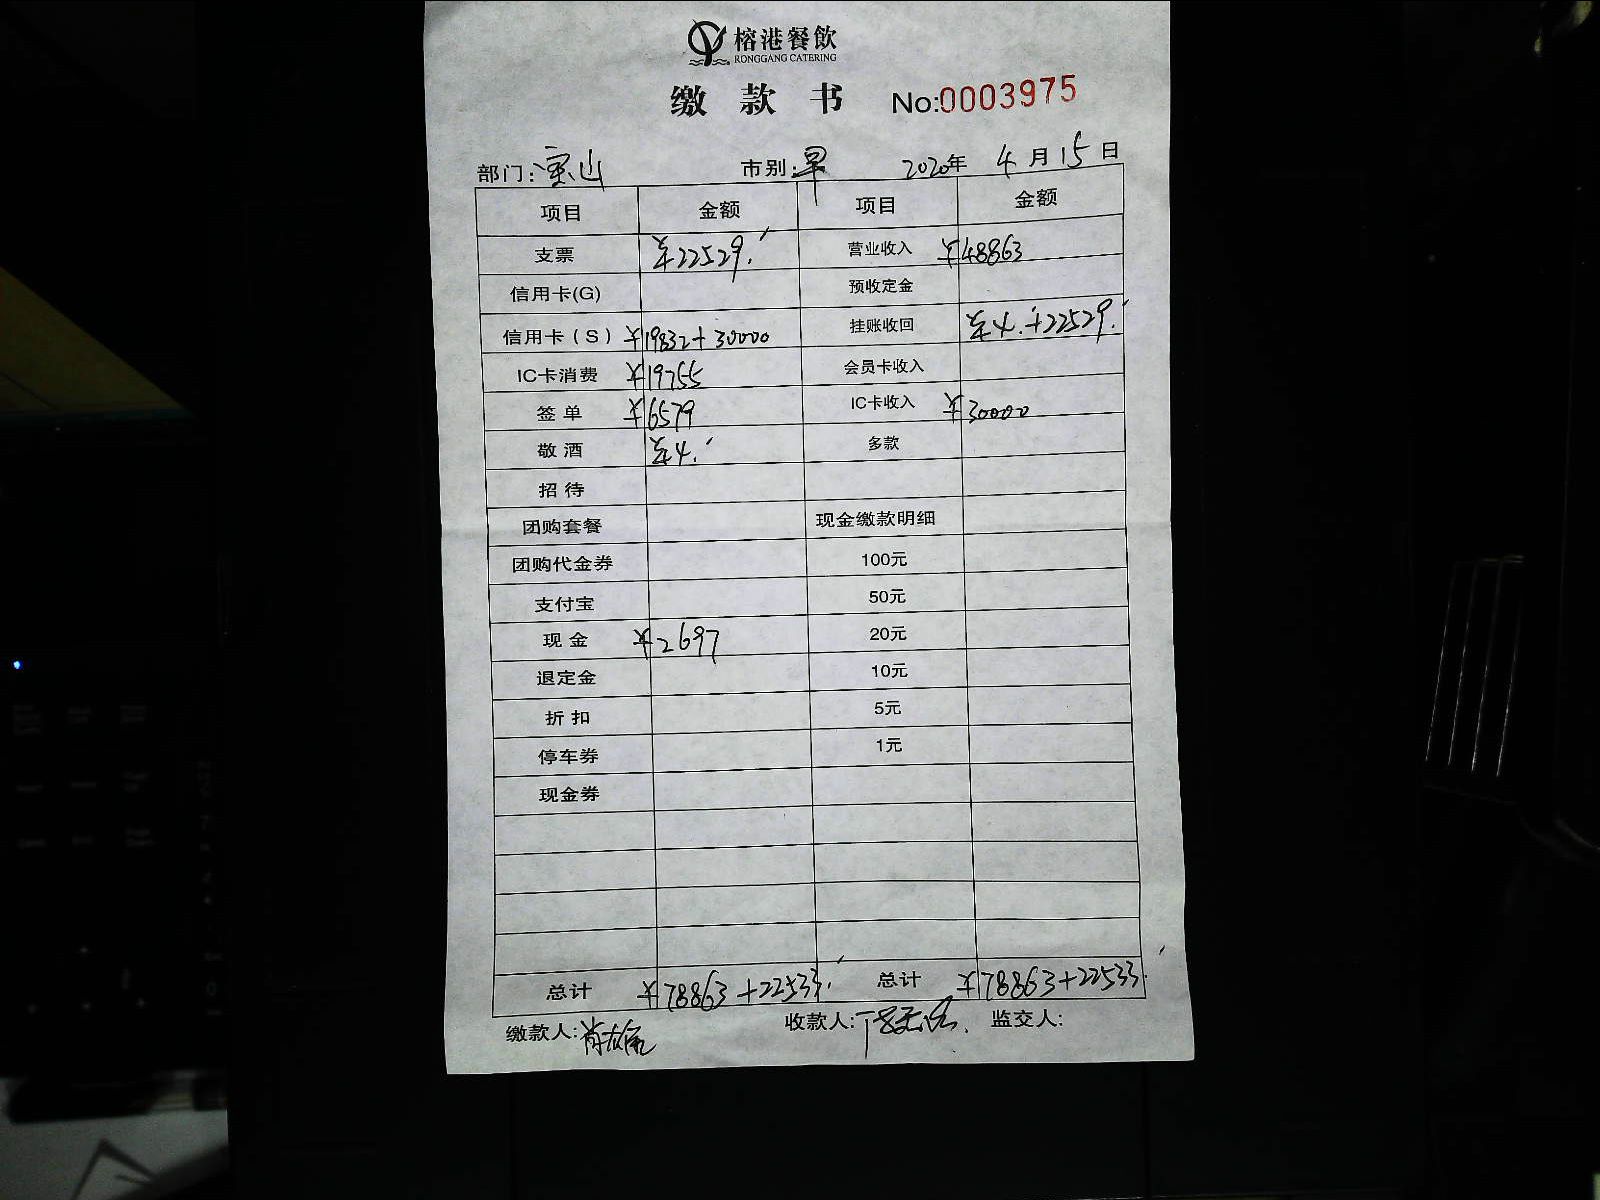 榕港餐飲
RONGGANG CATERING
缴款书 No:0003975
部门:宝山 市别:早 2020年 4月15日
项目 金额 项目 金额
支票 ¥22529. 营业收入 ¥48863
信用卡(G) 预收定金
信用卡(S) ¥19832+30000 挂账收回 ¥4.+22529.
IC卡消费 ¥19755 会员卡收入
签单 ¥6579 IC卡收入 ¥30000
敬酒 ¥4. 多款
招待
团购套餐 现金缴款明细
团购代金券 100元
支付宝 50元
现金 ¥2697 20元
退定金 10元
折扣 5元
停车券 1元
现金券
总计 ¥78863+22533. 总计 ¥78863+22533.
缴款人: 收款人: 监交人: